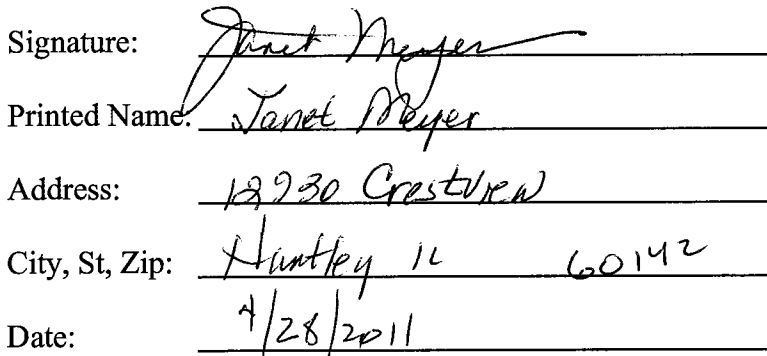 Signature: Janet Meyer
Printed Name: Janet Meyer
Address: 12930 Crestview
City, St, Zip: Huntley IL 60142
Date: 4/28/2011